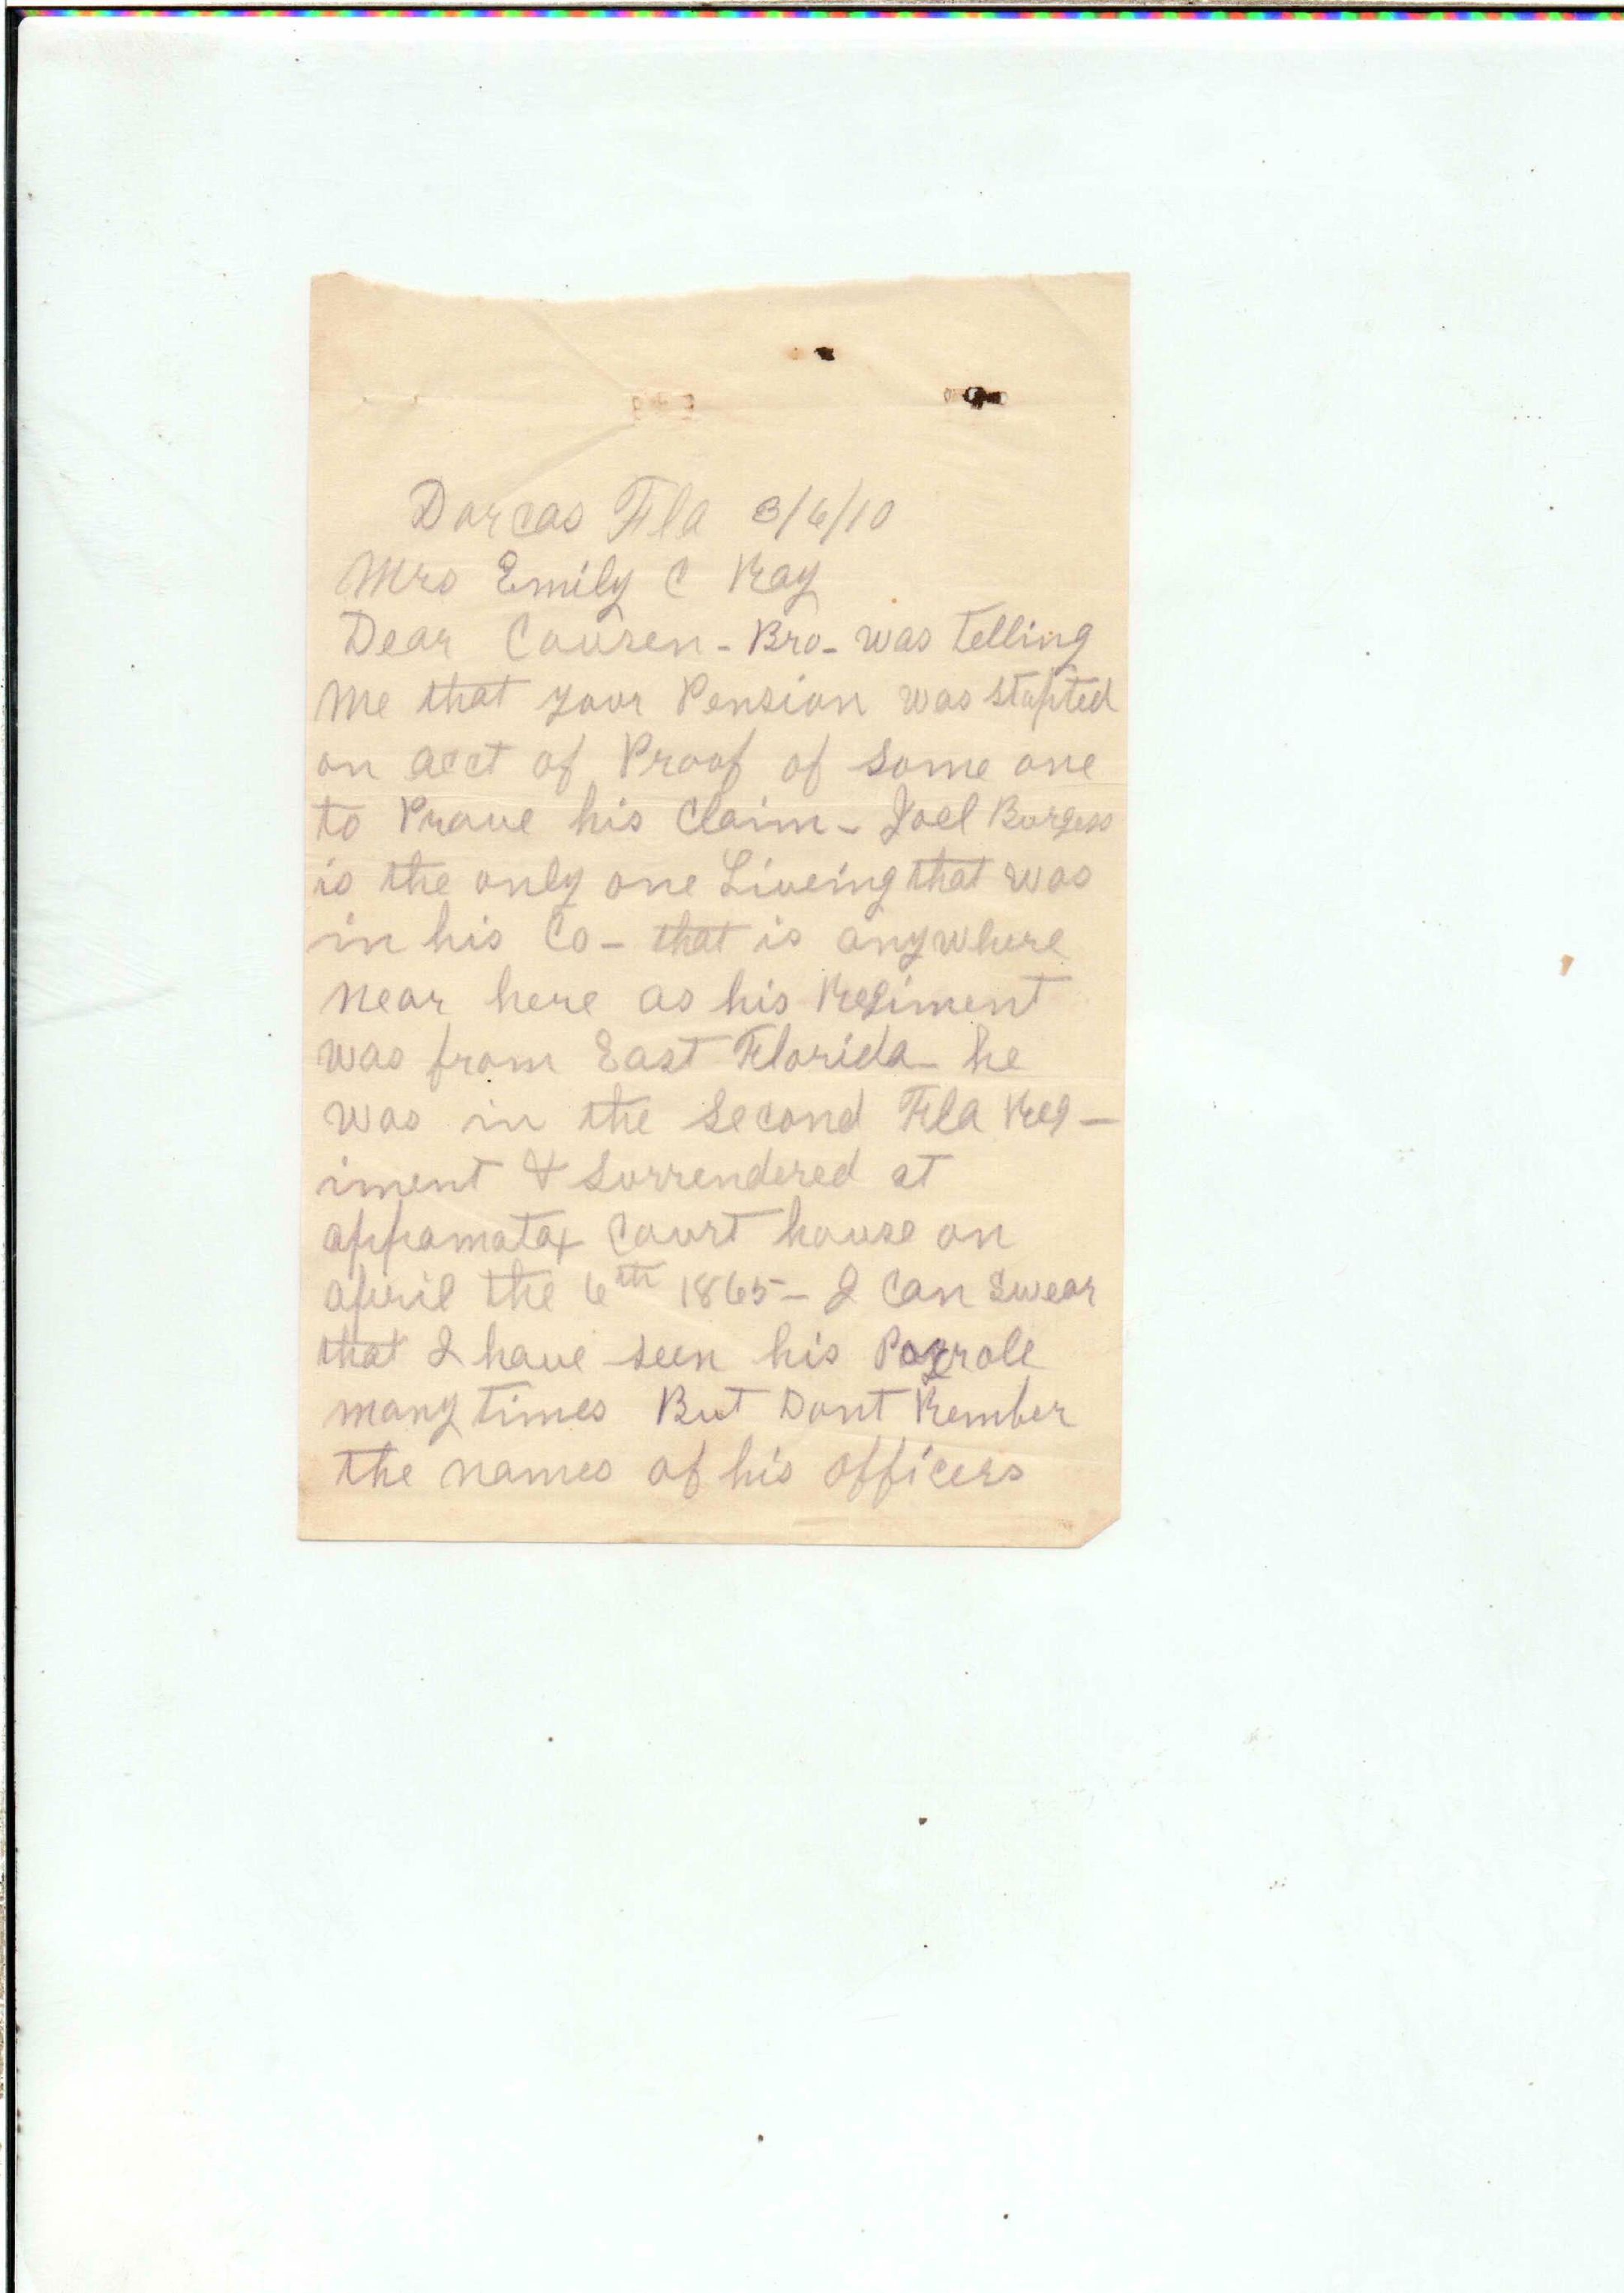 Dorcas Fla 3/6/10
Mrs Emily C Ray
Dear Cousen - Bro - was telling
me that your Pension was stopted
on acct of Proof of some one
to Prove his Claim - Joel Burgess
is the only one Liveing that was
in his Co - that is anywhere
near here as his Regiment
was from East Florida - he
was in the second Fla Reg -
iment & surrendered at
appamatax Court house on
april the 6th 1865 - I Can swear
that I have seen his Parrole
many times But Dont Rember
the names of his officers